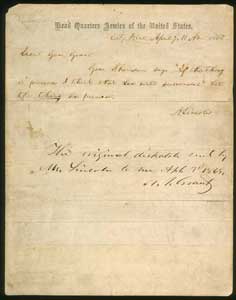 Head Quarters Armies of the United States,
City Point, April 7. 11 A.M. 1865
Lieut. Gen. Grant.
Gen. Sheridan says "If the thing
is pressed I think that Lee will surrender." Let
the thing be pressed.
A. Lincoln
The original dispatch sent by
Mr. Lincoln to me Apl. 7th 1865.
U. S. Grant